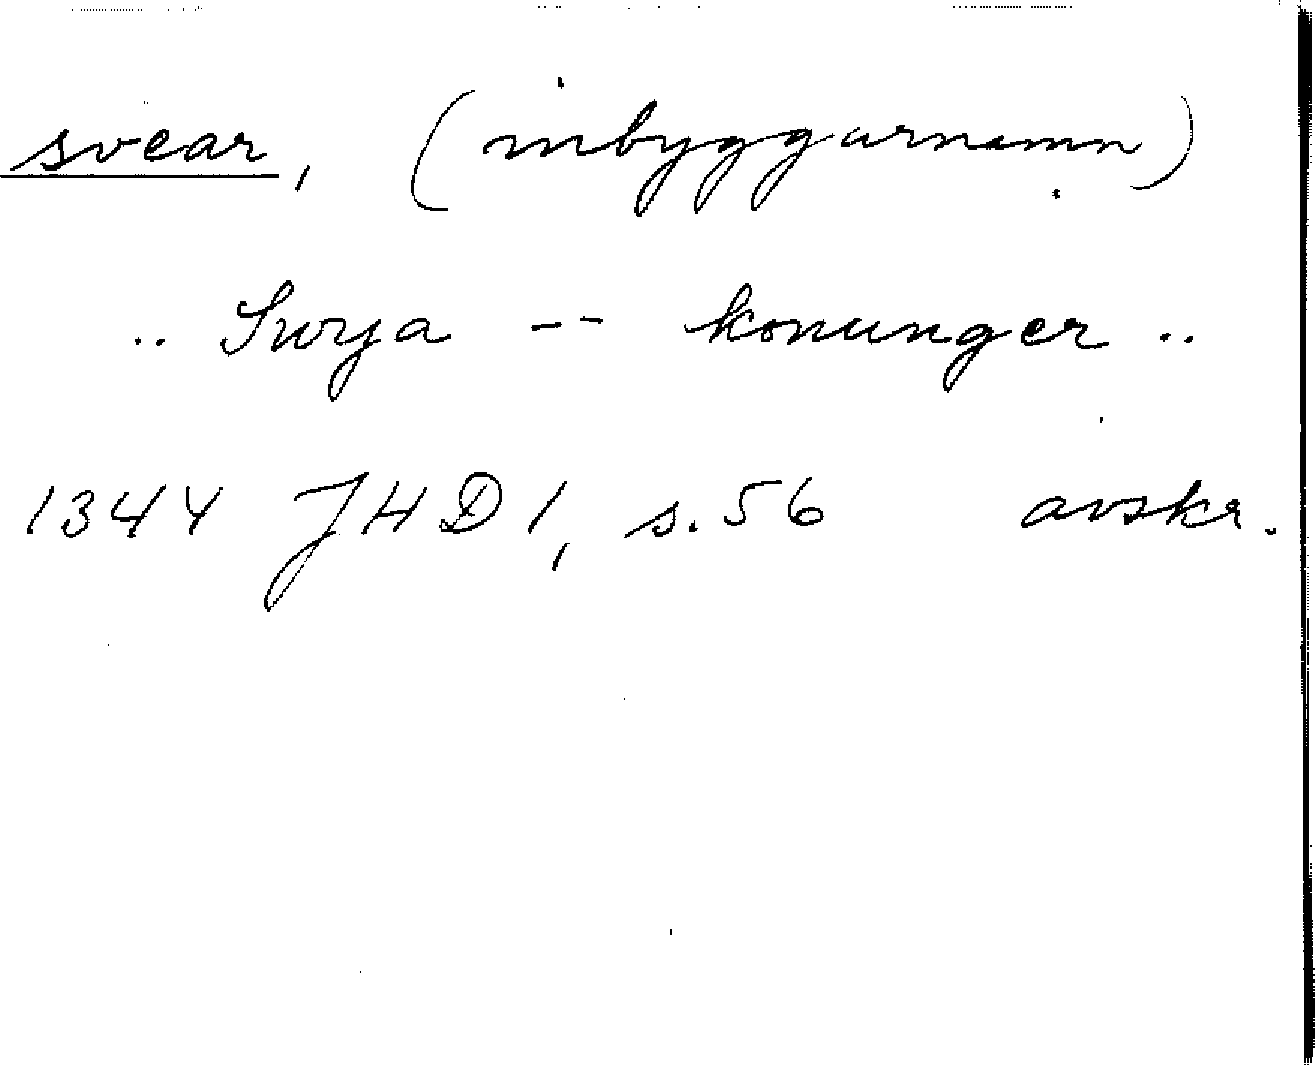 svear, (inbyggarnamn)
.. Swrja -- konunger ..
1344 JHD 1, s. 56 avskr.